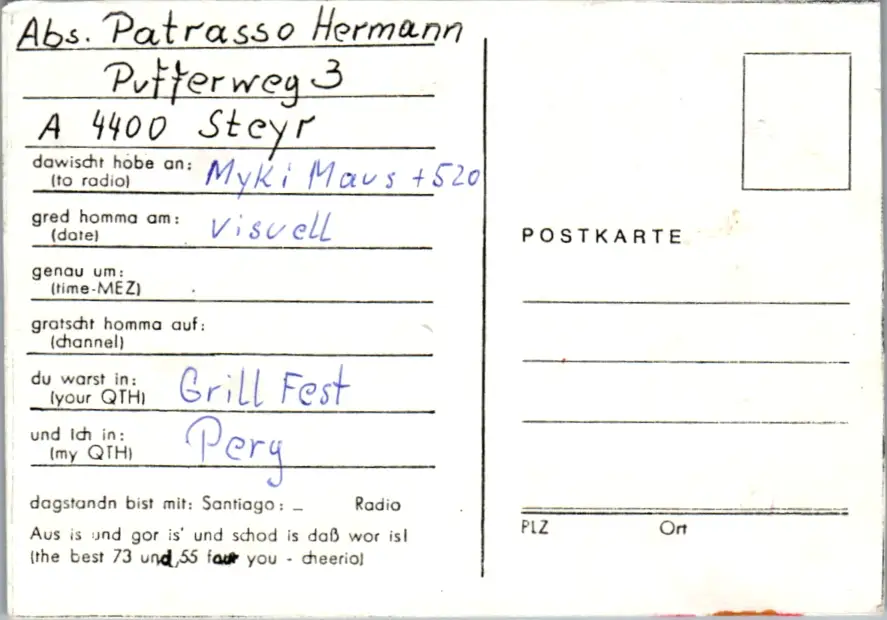 Abs. Patrasso Hermann
Pufferweg 3
A 4400 Steyr
dawischt höbe an: Myki Maus +520
(to radio)
gred homma am: visuell
(date)
genau um:
(time-MEZ)
gratscht homma auf:
(channel)
du warst in: Grill Fest
(your QTH)
und Ich in: Perg
(my QTH)
dagstandn bist mit: Santiago: _ Radio
Aus is und gor is' und schod is daß wor is!
(the best 73 und ,55 four you - cheerio)
POSTKARTE
PLZ Ort